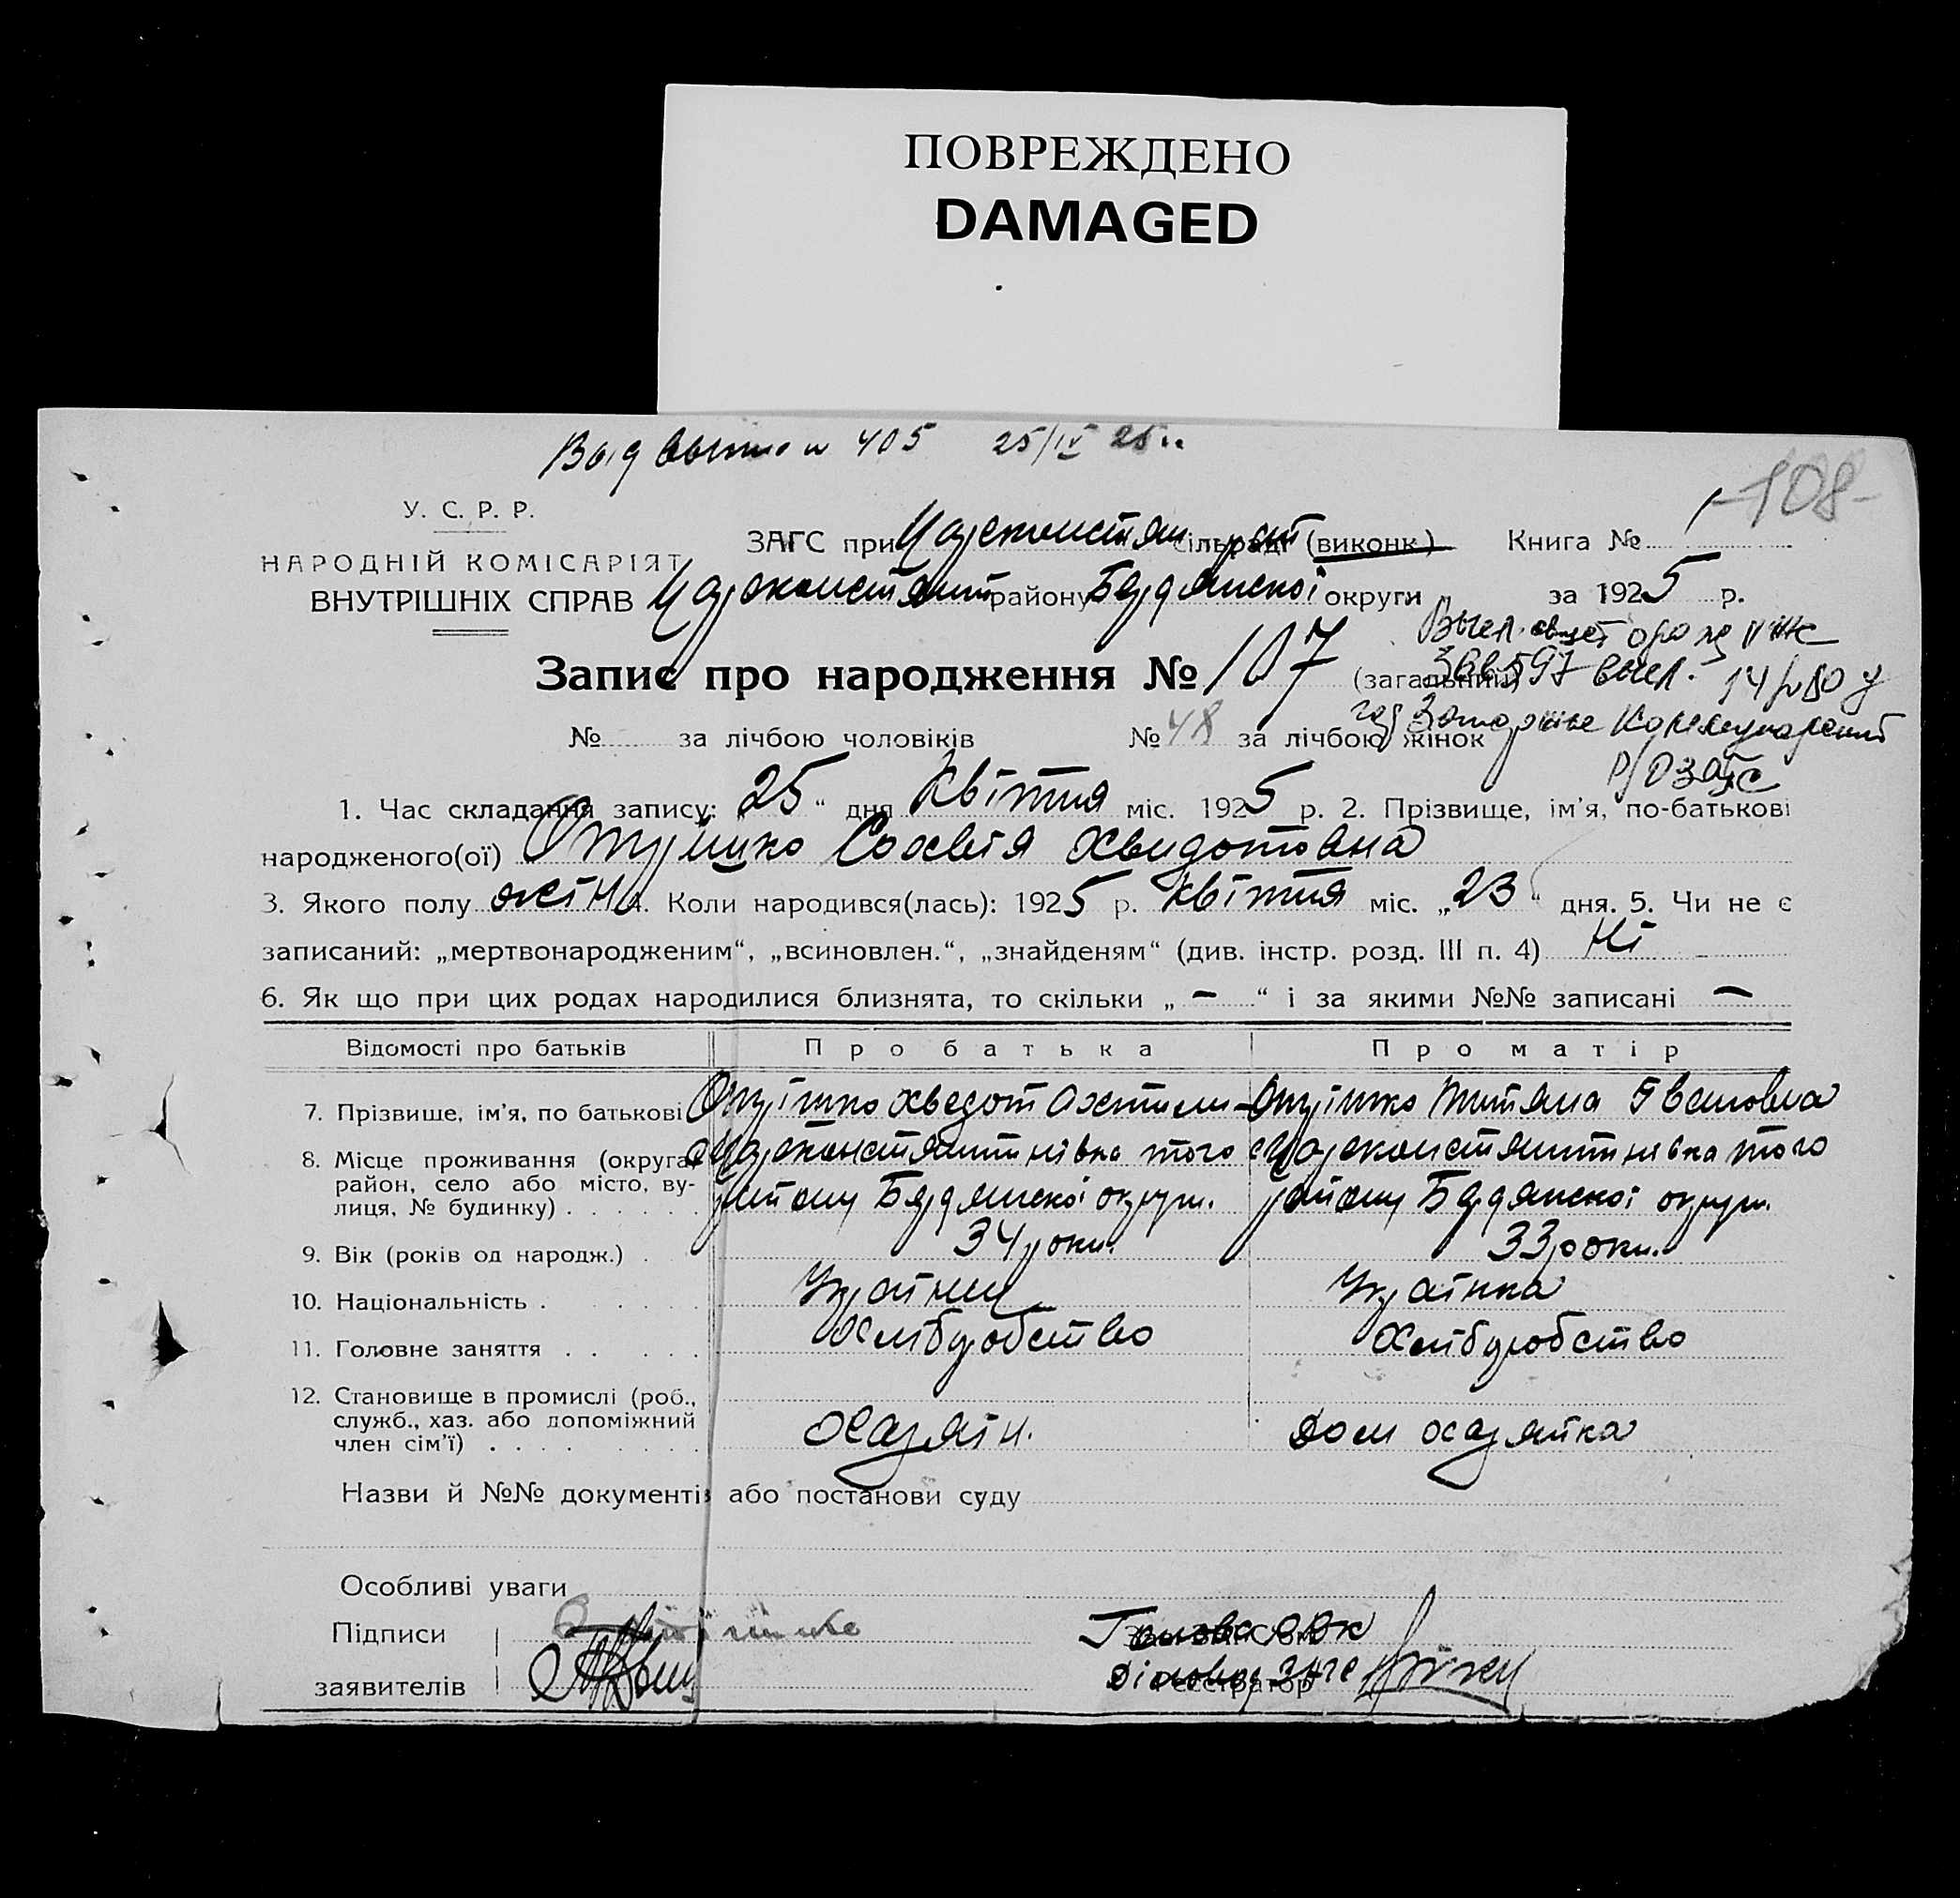 ПОВРЕЖДЕНО
DAMAGED
405 25/IV 25
-108-
У. С. Р. Р.
НАРОДНІЙ КОМІСАРІЯТ
ВНУТРІШНІХ СПРАВ
ЗАГС при Цареконстян сільраді (виконк.) Книга № 1
Царсконстянт району Бердянської округи за 1925 р.
Запис про народження № 107 (загальний)
14/
№ за лічбою чоловіків № 48 за лічбою жінок
р/О ЗАГС
1. Час складання запису: 25 “ дня Квітня міс. 1925 р. 2. Прізвище, ім’я, по-батькові
народженого(ої) Опрішко Сохвія Хведотовна
3. Якого полу жіно. Коли народився(лась): 1925 р. Квітня міс. „23“ дня. 5. Чи не є
записаний: „мертвонародженим“, „всиновлен.“, „знайденям“ (див. інстр. розд. III п. 4) Ні
6. Як що при цих родах народилися близнята, то скільки „ – “ і за якими №№ записані –
Відомості про батьків Про батька Про матір
7. Прізвище, ім’я, по батькові Опрішко Хведот Опрішко Титяна Явсиовна
8. Місце проживання (округа, район, село або місто, вулиця, № будинку) . . . . . .
с Царсконстянтинівка того району Бердянської округи.
с Царсконстянтинівка того району Бердянської округи.
9. Вік (років од народж.) . 34 роки. 33 роки.
10. Національність . . . . . Українец Українка
11. Головне заняття . . . . . Хлібуробство Хлібуробство
12. Становище в промислі (роб., служб., хаз. або допоміжний член сім’ї) . . . . . . . .
Хазяїн. Дом хазяйка
Назви й №№ документів або постанови суду
Особливі уваги
Підписи
заявителів
Голова РВК
Діловод ЗАГС